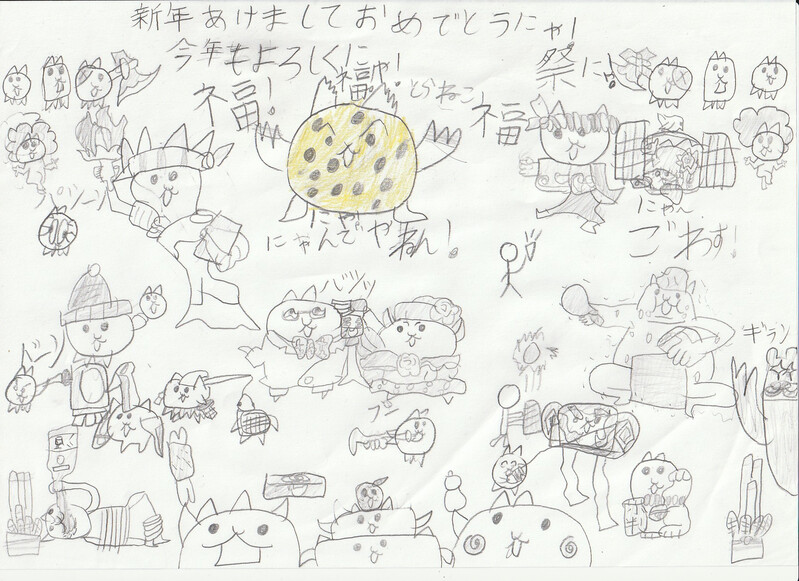 新年あけましておめでとうにゃ!
今年もよろしくに
福にゃ!
祭にゃ!
福!
とらねこ
福
パンパーン
にゃ
にゃんでやねん!
にゃ~
ごわす!
バッッ
ギラン
ドーン
ブー